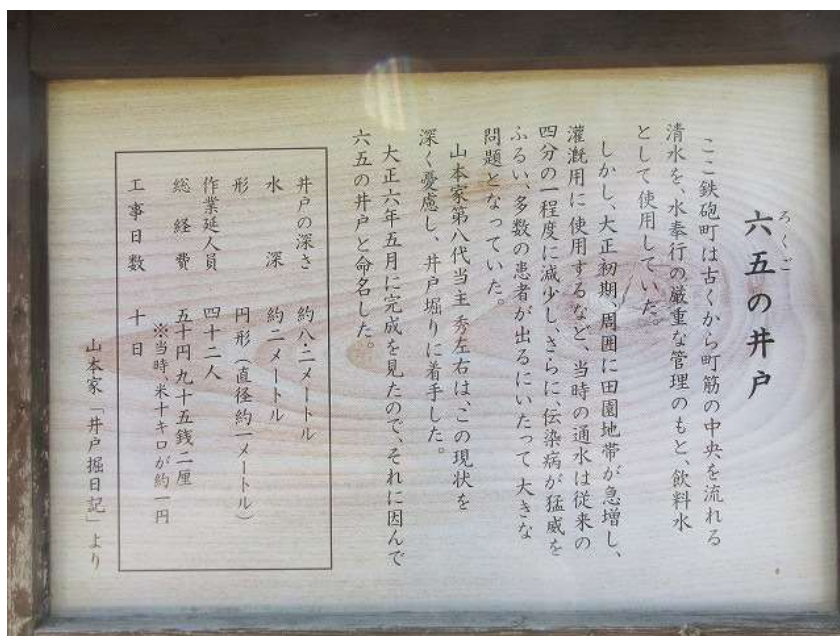 六五の井戸
ろくご
ここ鉄砲町は古くから町筋の中央を流れる
清水を、水奉行の厳重な管理のもと、飲料水
として使用していた。
しかし、大正初期、周囲に田園地帯が急増し、
灌漑用に使用するなど、当時の通水は従来の
四分の一程度に減少し、さらに、伝染病が猛威を
ふるい、多数の患者が出るにいたって大きな
問題となっていた。
山本家第八代当主 秀左右は、この現状を
深く憂慮し、井戸堀りに着手した。
大正六年五月に完成を見たので、それに因んで
六五の井戸と命名した。
井戸の深さ 約八・二メートル
水深 約二メートル
形 円形（直径約一メートル）
作業延人員 四十二人
総経費 五十円九十五銭二厘
※当時 米十キロが約一円
工事日数 十日
山本家「井戸掘日記」より